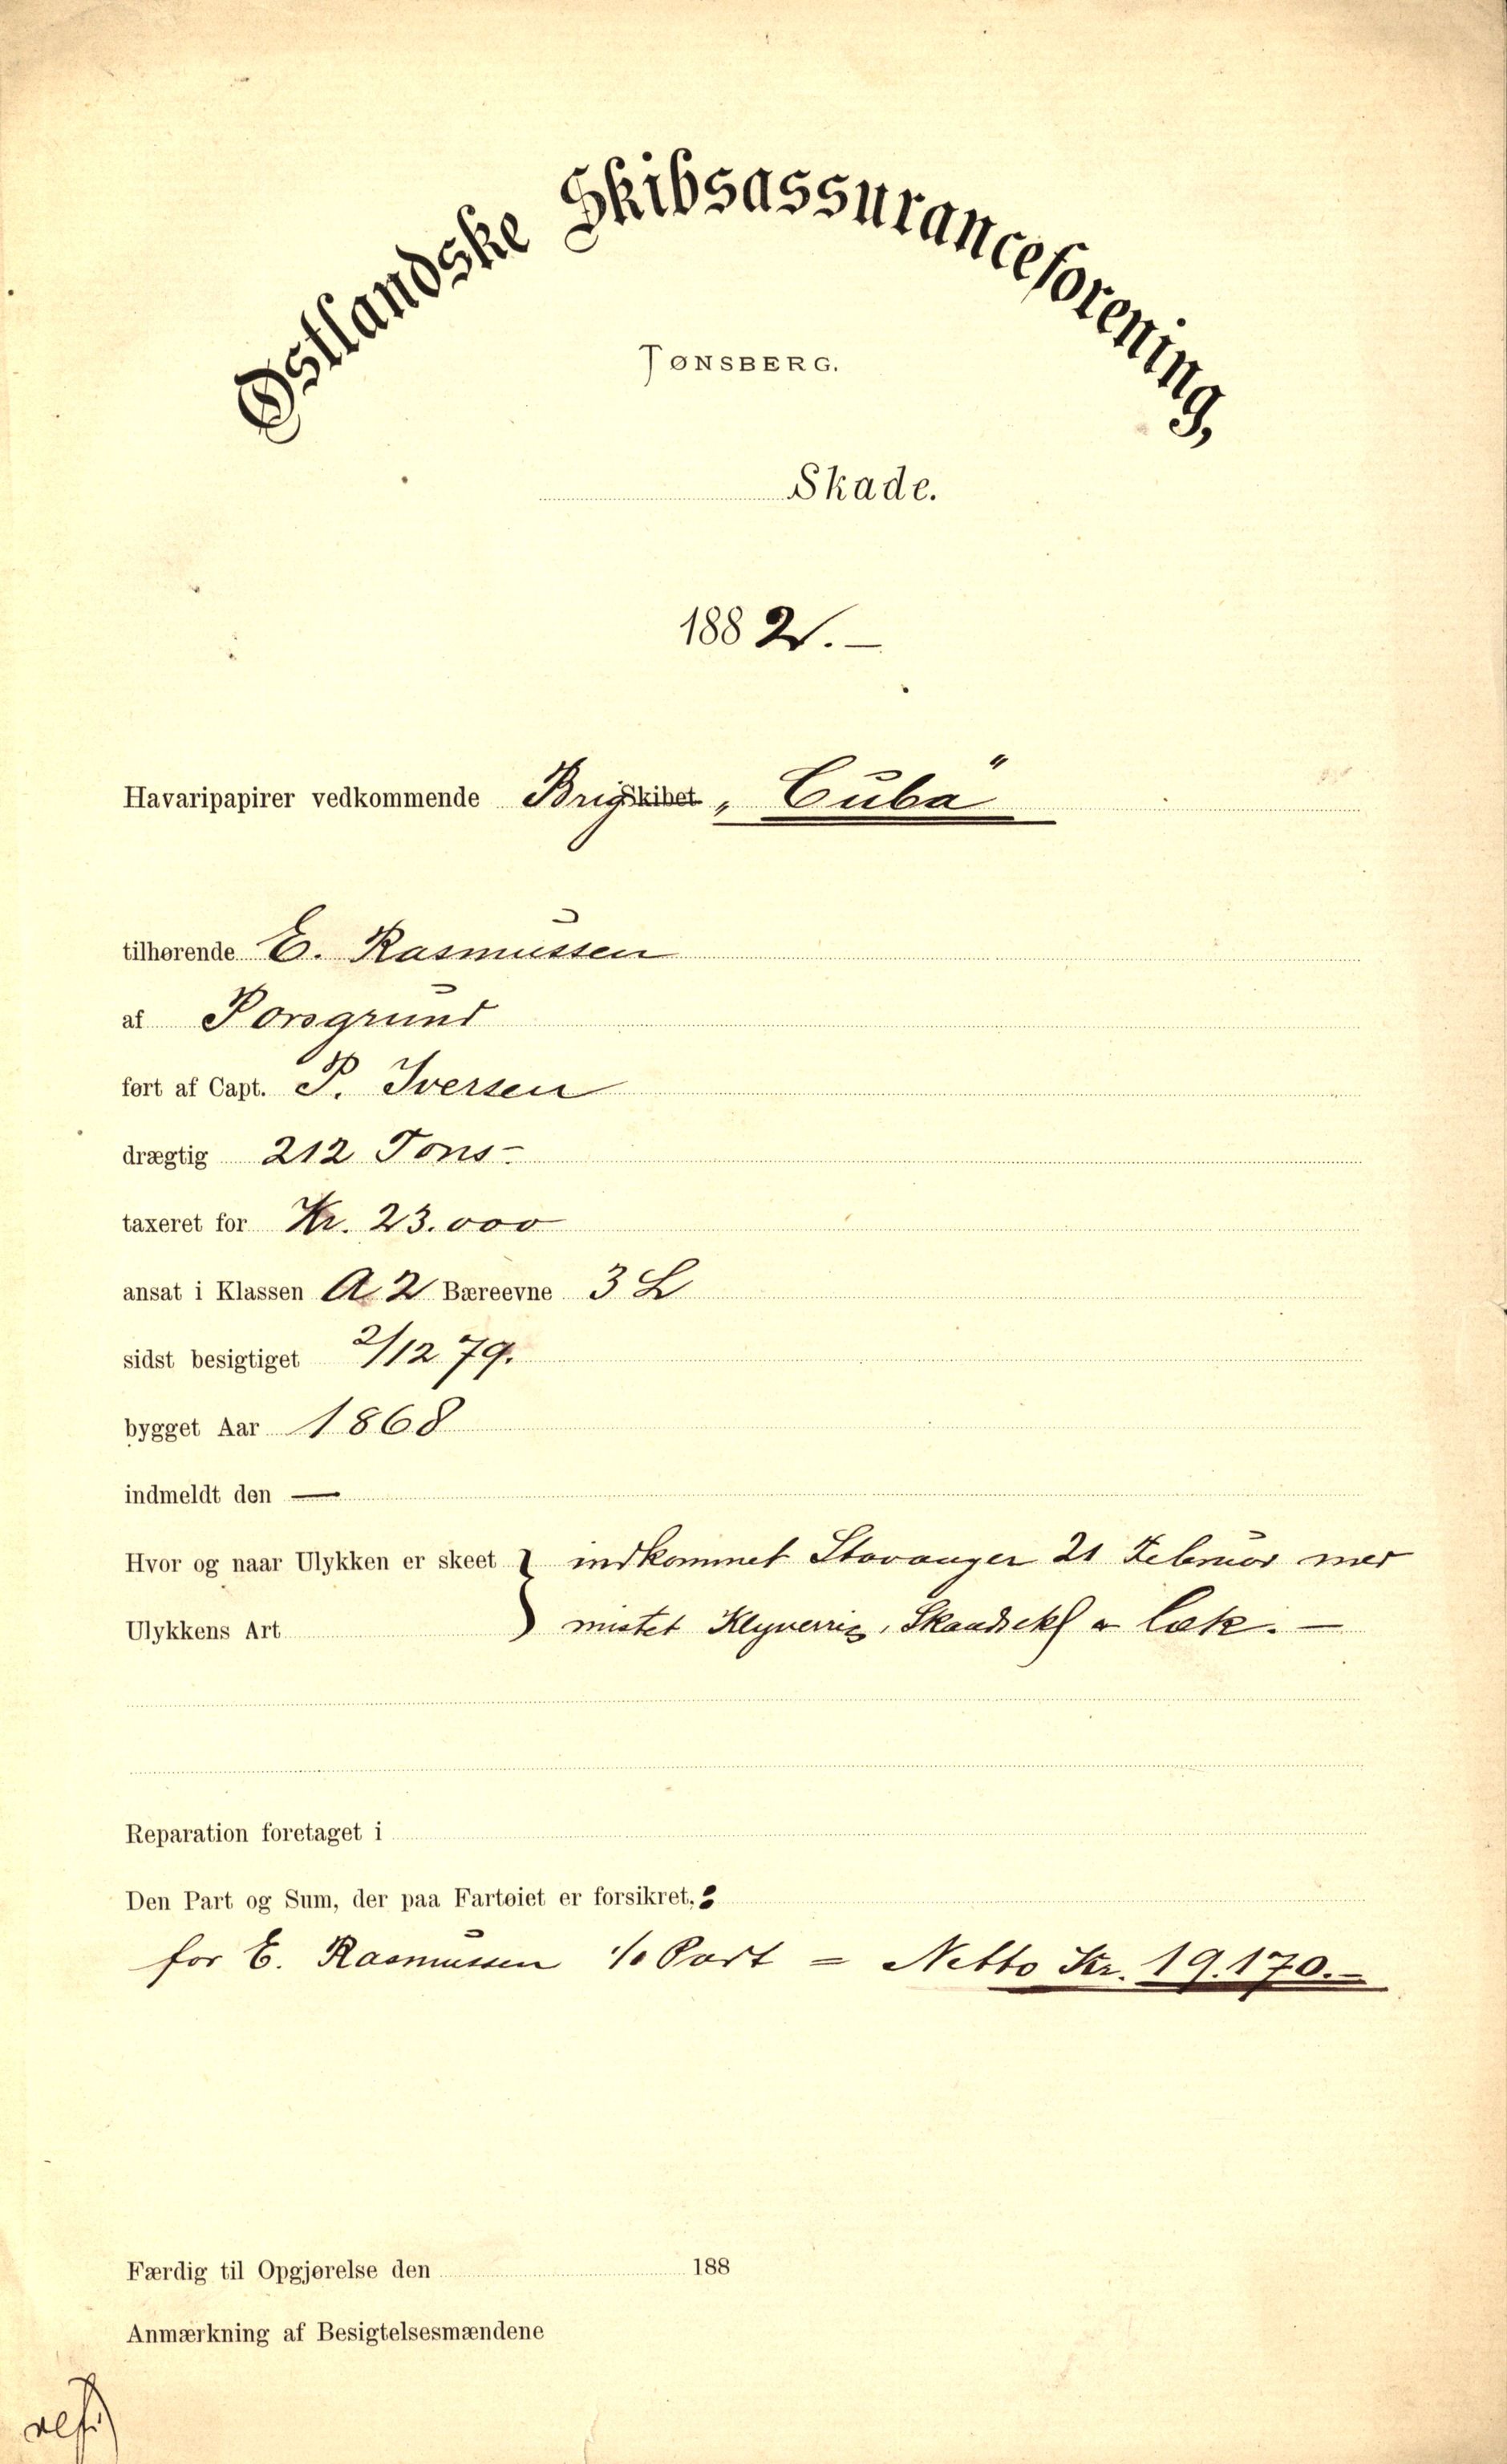 Østlandske Skibsassuranceforening,
TØNSBERG.
Skade.
1882.–
Havaripapirer vedkommende Brig Skibet „Cuba"
tilhørende E. Rasmussen
af Porsgrund
ført af Capt. P. Iversen
drægtig 212 Tons–
taxeret for Kr. 23.000
ansat i Klassen A 2 Bæreevne 3 L
sidst besigtiget 2/12 79.
bygget Aar 1868
indmeldt den —
Hvor og naar Ulykken er skeet } indkommet Stavanger 21 Februar med
Ulykkens Art mistet Klyverrig, læk.–
Reparation foretaget i
Den Part og Sum, der paa Fartøiet er forsikret,:
for E. Rasmussen Part = Netto Kr. 19.170.–
Færdig til Opgjørelse den 188
Anmærkning af Besigtelsesmændene